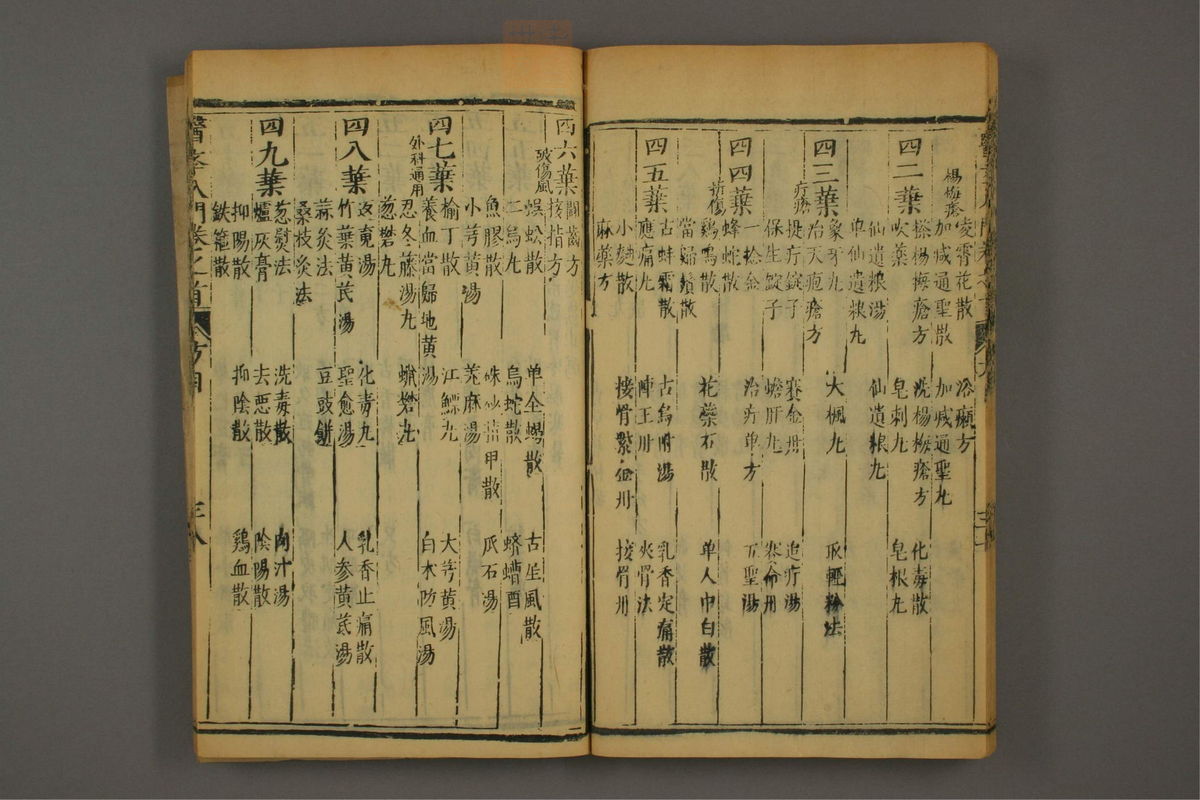 四二葉
楊梅瘡
凌霄花散 浴癩方
加減通聖散 加減通聖丸 化毒散
捻楊梅瘡方 洗楊梅瘡方
吹藥 皂刺丸 皂根丸
仙遺粮湯 仙遺粮丸
単仙遺粮丸
四三葉
疔瘡
象牙丸 大楓丸 取輕粉法
治天疱瘡方
捉疔錠子 賽金丹 追疔湯
保生錠子 蟾肝丸
一捻金 治疔単方 五聖湯
四四葉
折傷
蜂蛇散
鷄鳴散 花蘂石散 単人中白散
當歸鬚散
四五葉
古蚌霜散 古烏附湯 乳香定痛散
應痛丸 陣王丹 夾骨法
小麯散 接骨紫金丹 接骨丹
麻藥方
四六葉
破傷風
鬪齒方
接指方
蜈蚣散 単全蝎散 古坐風散
二烏丸 烏蛇散 蠐螬酒
魚膠散 硃砂指甲散 瓜石湯
小芎黄湯 羗麻湯
四七葉
外科通用
榆丁散 江鰾丸 大芎黄湯
養血當歸地黄湯 白术防風湯
忍冬藤湯丸 蠟礬丸
葱礬丸
四八葉
返䰟湯 化毒丸 乳香止痛散
竹葉黄芪湯 聖愈湯 人参黄芪湯
蒜灸法 豆豉餅
桑枝灸法
四九葉
葱熨法 洗毒散 肉汁湯
爐灰膏 去惡散 陰陽散
抑陽散 抑陰散 鷄血散
鉄箍散
醫學入門卷之首 方目 三八